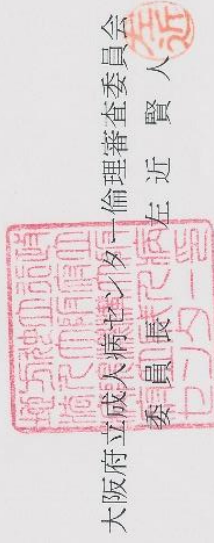 大阪府立成人病センター倫理審査委員会
委員長 左近賢人
左近